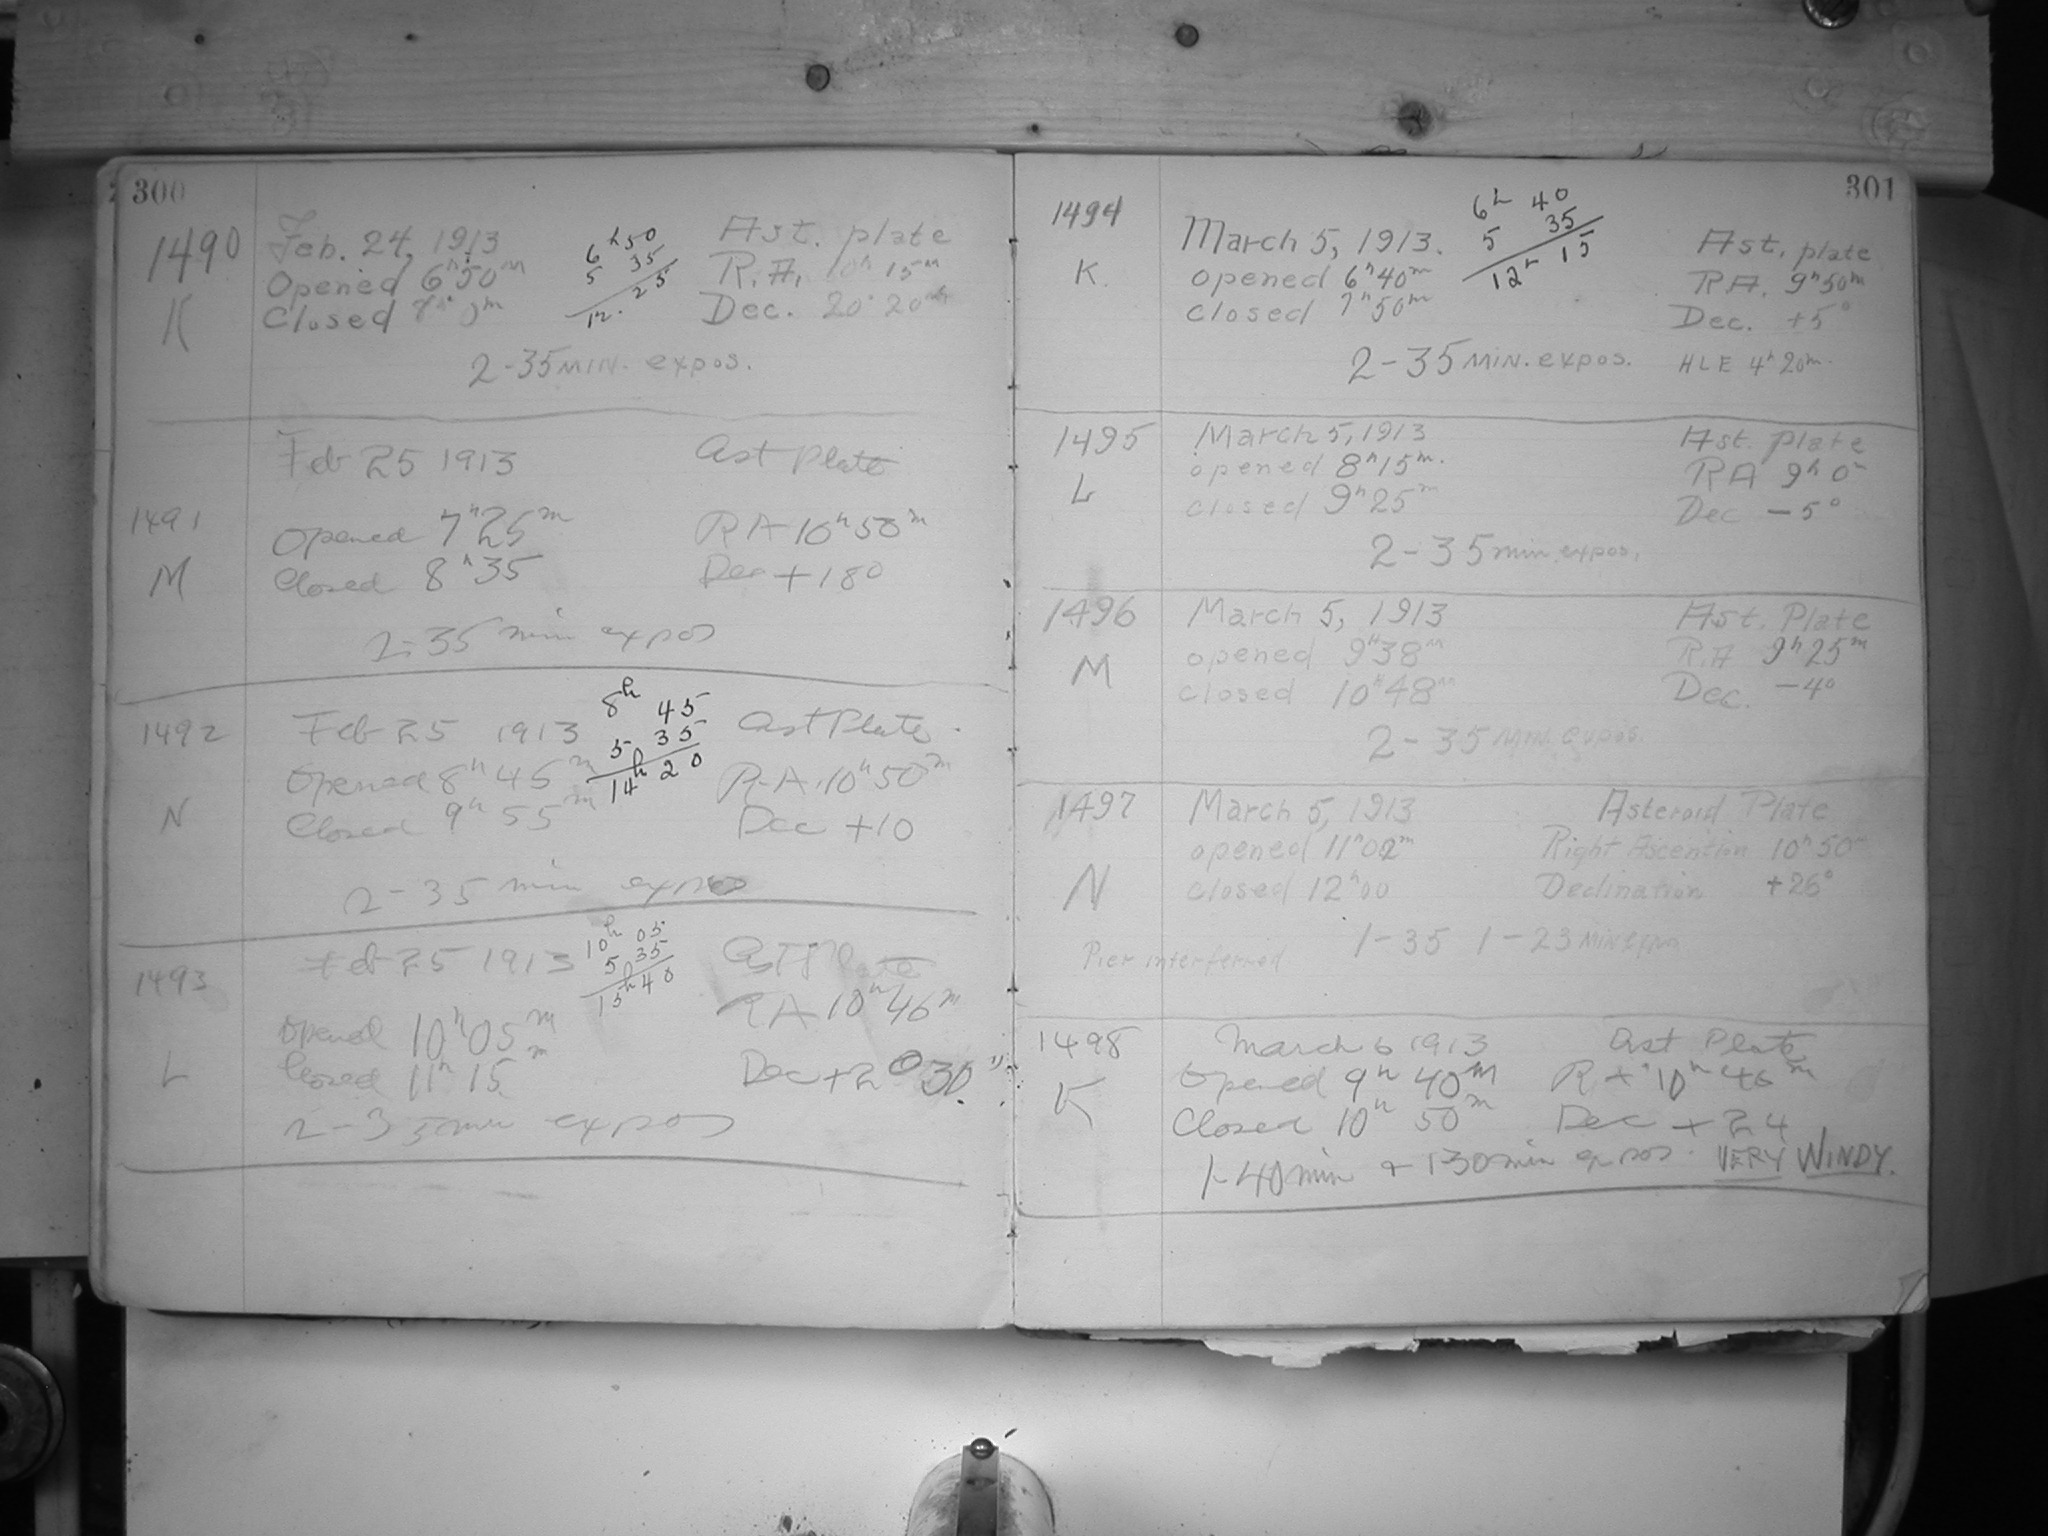 300
1490
K
Feb. 24, 1913
Opened 6h 50m
Closed 8h 0m
6h 50
5 35
12. 25
Ast. plate
R.A. 10h 15m
Dec. 20° 20m
2-35 MIN. expos.
1491
M
Feb 25 1913
Ast Plate
Opened 7h 25m
Closed 8h 35
RA 10h 50m
Dec + 180
2-35 min expos
1492
N
Feb 25 1913
Opened 8h 45m
Closed 9h 55m
8h 45
5 35
14h 20
Ast Plate.
R.A. 10h 50m
Dec +10
2-35 min expos
1493
L
Feb 25 1913
10h 05
5 35
15h 40
Ast Plate
Opened 10h 05m
Closed 11h 15m
RA 10h 46m
Dec + 2° 30"
2-35 min expos
301
1494
K.
March 5, 1913.
opened 6h 40m
closed 7h 50m
6h 40
5 35
12h 15
Ast. plate
RA. 9h 50m
Dec. +5°
2-35 MIN. expos.
HLE 4h 20m.
1495
L
March 5, 1913
opened 8h 15m.
closed 9h 25m
Ast. plate
RA 9h 0m
Dec -5°
2-35 min expos.
1496
M
March 5, 1913
opened 9h 38m
closed 10h 48m
Ast. Plate
R.A 9h 25m
Dec. -4°
2-35 MIN. expos.
1497
N
March 5, 1913
opened 11h 02m
closed 12h 00
Asteroid Plate
Right Ascention 10h 50m
Declination +26°
1-35 1-23 MIN expos
Pier interferred
1498
K
March 6 1913
Opened 9h 40m
Closed 10h 50m
Ast Plate
R + 10h 46m
Dec + 24
1-40 min + 1-30 min expos. VERY WINDY.